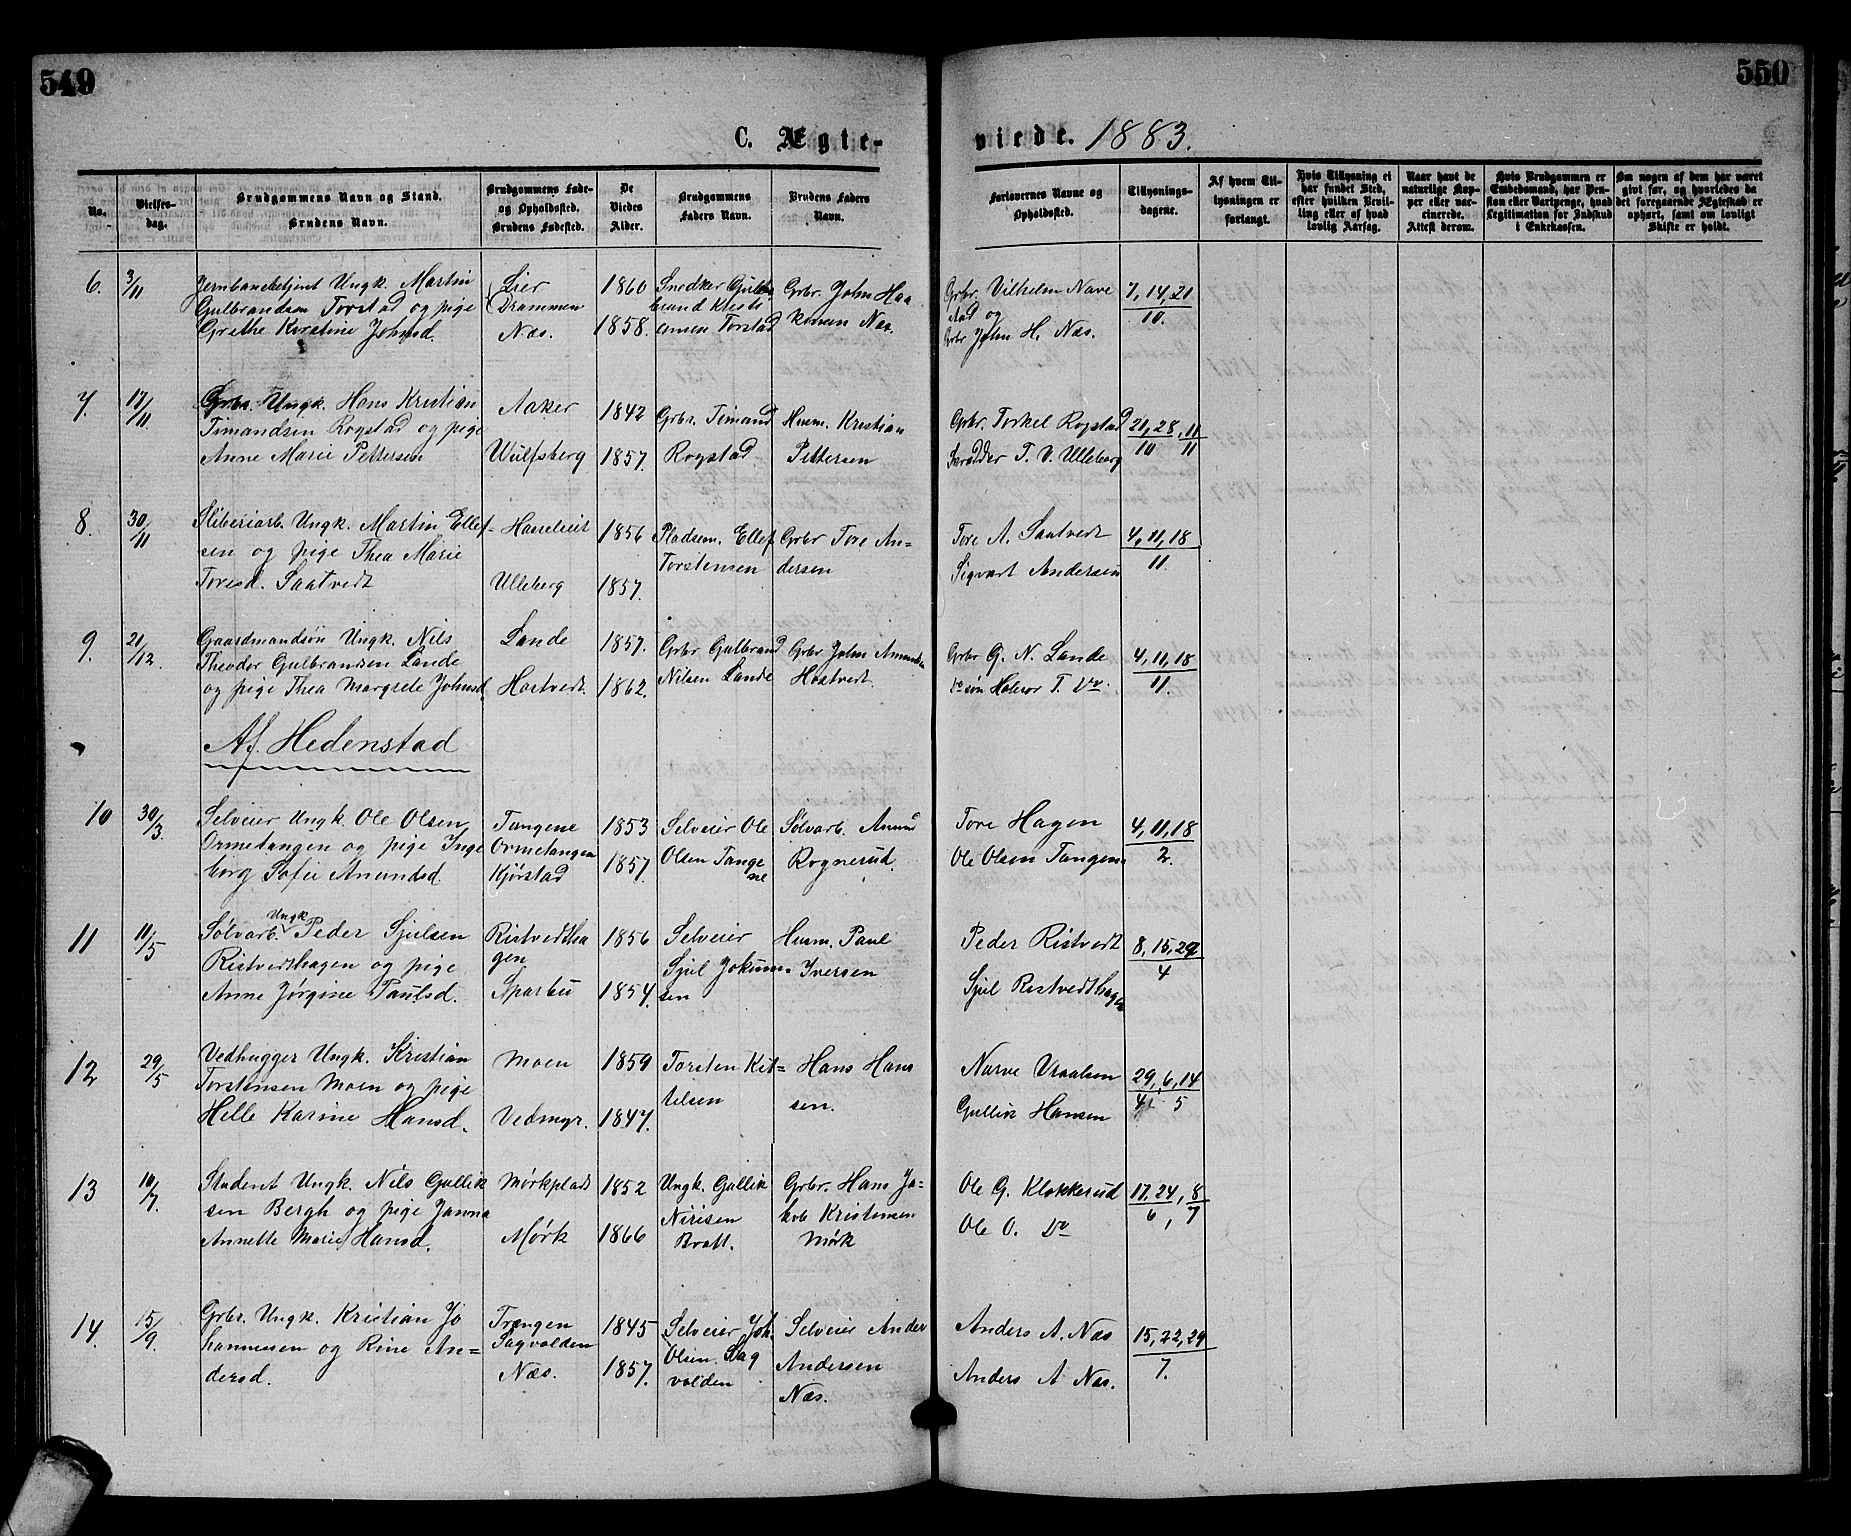 549
550
C. Ægte-
viede. 1883.
No.
Vielses-
dag.
Brudgommens Navn og Stand.
Brudens Navn.
Brudgommens Føde-
og Opholdssted.
Brudens Fødested.
De
Viedes
Alder.
Brudgommens
Faders Navn.
Brudens Faders
Navn.
Forlovernes Navne og
Opholdssted.
Tillysnings-
dagene.
Af hvem Til-
lysningen er
forlangt.
Hvis Tillysning ei
har fundet Sted,
efter hvilken Bevil-
ling eller af hvad
lovlig Aarsag.
Naar havt de
naturlige Kop-
per eller vac-
cinerede.
Attest derom.
Hvis Brudgommen er
Embedsmand, har Pen-
sion eller Vartpenge, hvad
Legitimation for Indskud
i Enkekassen.
Om nogen af dem har været
givt før, og hvorledes da
det foregaaende Ægteskab er
ophørt, samt om lovligt
Skifte er holdt.
6.
3/11
Jernbanebetjent Ungk. Martin
Gulbrandsen Torstad og pige
Grethe Kirstine Johnsd.
Lier
Drammen
Næs.
1860
1858.
Snedker Gulb
brand Kristi
ansen Torstad
Grbr. John Haa
konsen Næs.
Grbr. Vilhelm Nave
stad og
Grbr John H. Næs.
7, 14, 21
10.
7.
17/11
Grbr. Ungk. Hans Kristian
Timandsen Rogstad og pige
Anne Marie Pettersen
Aaker
Wulfsberg
1842
1857.
Grbr. Timand
Rogstad
Husm. Kristian
Pettersen
Grbr. Torkel Rogstad
Skrædder T. V. Ulleberg
21, 28, 11
10 11
8.
30/11
Sliberiarb. Ungk. Martin Ellef-
sen og pige Thea Marie
Toresd. Saatvedt
Hasseleiet
Ulleberg
1856
1857.
Pladsem. Ellef
Torstensen
Grbr Tore An=
dersen
Tore A. Saatvedt
Sigvart Andersen
4, 11, 18
11.
9.
21/12.
Gaardmandsøn Ungk. Nils
Theodor Gulbrandsen Lande
og pige Thea Margrete Johnsd
Lande
Hostvedt.
1857.
1862.
Grbr Gulbrand
Nilsen Lande
Grbr John Amunds
Hostvedt.
Grbr G. N. Lande
Do søn Halvor T. Do.
4, 11, 18
11.
Af. Hedenstad
10
30/3.
Selveier Ungk. Ole Olsen
Ormetangen og pige Inge
borg Sofie Amundsd.
Tangene
Ormetangen
Kjørstad
1853
1857.
Selveier Ole
Olsen Tange
ne
Sølvarb. Amund
Rognerud.
Tore Hagen
Ole Olsen Tangene
4, 11, 18
2.
11
11/5
Ungk
Sølvarb. Peder Sjulsen
Ristvedthagen og pige
Anne Jørgine Paulsd.
Ristvedtha
gen
Sparbu
1856
1854.
Selveier
Sjul Jokum=
sen
Husm. Paul
Iversen
Peder Ristvedt
Sjul Ristvedthagen
8, 15, 29
4
12
29/5
Vedhugger Ungk. Kristian
Torstensen Moen og pige
Helle Karine Hansd.
Moen
Vedmyr.
1859
1847.
Torsten Kit=
telsen
Hans Hans
sen.
Narve Uraalsen
Gullik Hansen
29, 6, 14
4 5
13
10/7.
Student Ungk. Nils Gullik
sen Bergh og pige Janna
Annette Marie Hansd.
Mørkplads
Mørk
1852
1866
Ungk. Gullik
Nirisen
Bratt.
Grbr. Hans Ja=
kob Kristensen
Mørk
Ole G. Klokkerud
Ole O. Do
17, 24, 8
6, 7
14.
15/9.
Grbr. Ungk. Kristian Jo
hannesen og Rine An=
dersd.
Trængen
Sagvolden
Næs.
1845
1857.
Selveier Joh.
Olsen Sag
volden
Selveier Ander
Andersen
Næs.
Anders A. Næs
Anders A Næs.
15, 22, 29
7.